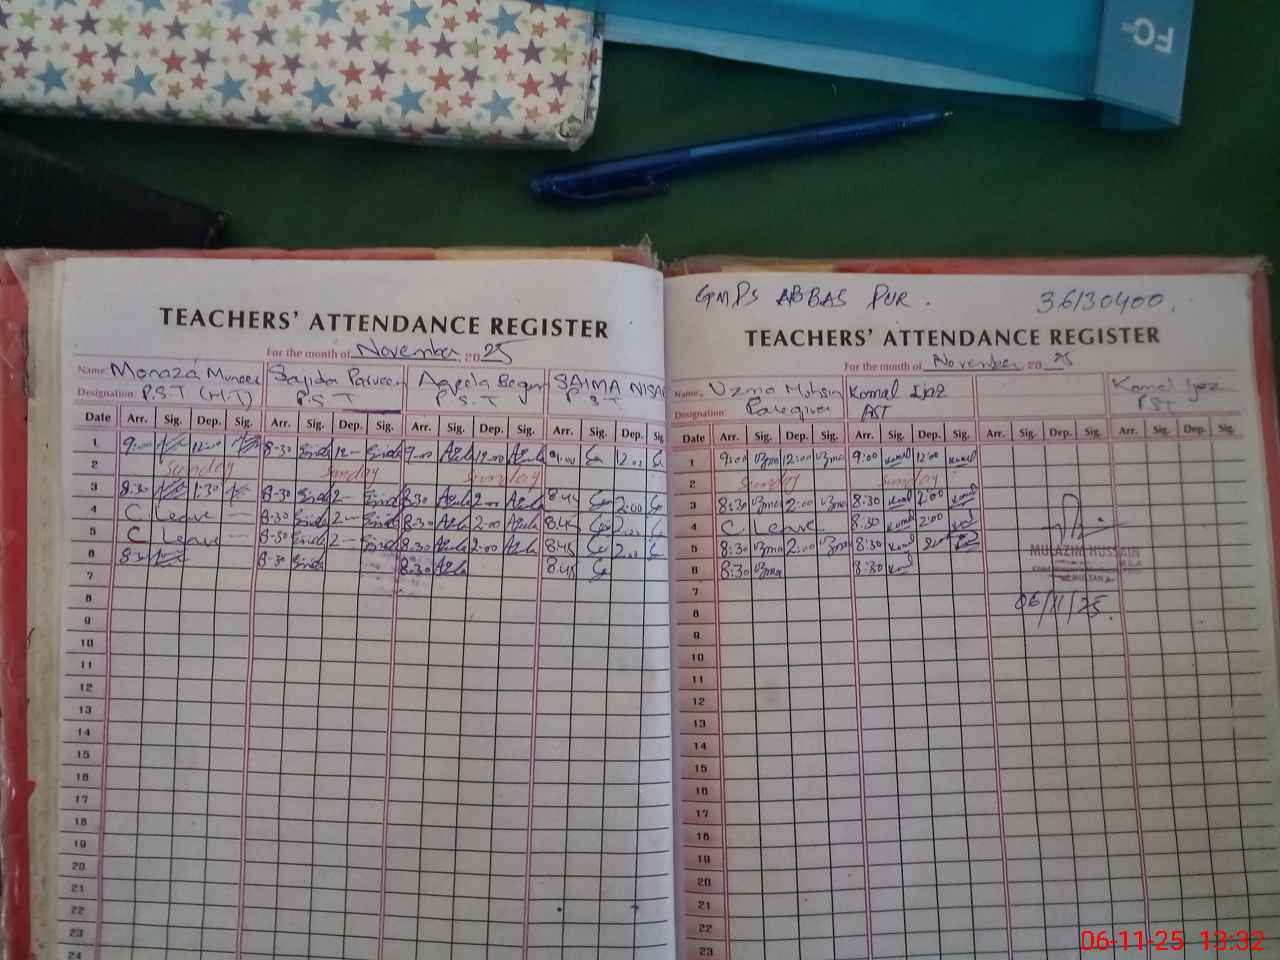 FC
TEACHERS' ATTENDANCE REGISTER
For the month of November 2025
Name: Monaza Muneer Sajida Parveen Begum SAIMA NISAR
Designation: P.S.T (H/T) P.S.T P.S.T P.S.T
Date Arr. Sig. Dep. Sig. Arr. Sig. Dep. Sig. Arr. Sig. Dep. Sig. Arr. Sig. Dep. Sig.
1 9:00 12:00 8-30 12- 9:00 12:00 9:00 12:00
2 Sunday Sunday Sunday
3 8:30 1:30 8-30 2- 8:30 2:00 8:45 2:00
4 C Leave - 8-30 2- 8:30 2:00 8:45 2:00
5 C Leave - 8-30 2- 8:30 2:00 8:45 2:00
6 8:30 8-30 8:30 8:45
7
8
9
10
11
12
13
14
15
16
17
18
19
20
21
22
23
24
GMPS ABBAS PUR. 36130400.
TEACHERS' ATTENDANCE REGISTER
For the month of November 2025
Name: Uzma Mohsin Komal Ijaz Komal Ijaz
Designation: Caregiver AST PST
Date Arr. Sig. Dep. Sig. Arr. Sig. Dep. Sig. Arr. Sig. Dep. Sig. Arr. Sig. Dep. Sig.
1 9:00 Uzma 12:00 Uzma 9:00 Komal 12:00 Komal
2 Sunday Sunday
3 8:30 Uzma 2:00 Uzma 8:30 Komal 2:00 Komal
4 C Leave 8:30 Komal 2:00 Komal
5 8:30 Uzma 2:00 Uzma 8:30 Komal
MULAZIM HUSSAIN
6 8:30 Uzma 8:30 Komal
MULTAN
7
8 06/11/25.
9
10
11
12
13
14
15
16
17
18
19
20
21
22
23
06-11-25 13:32